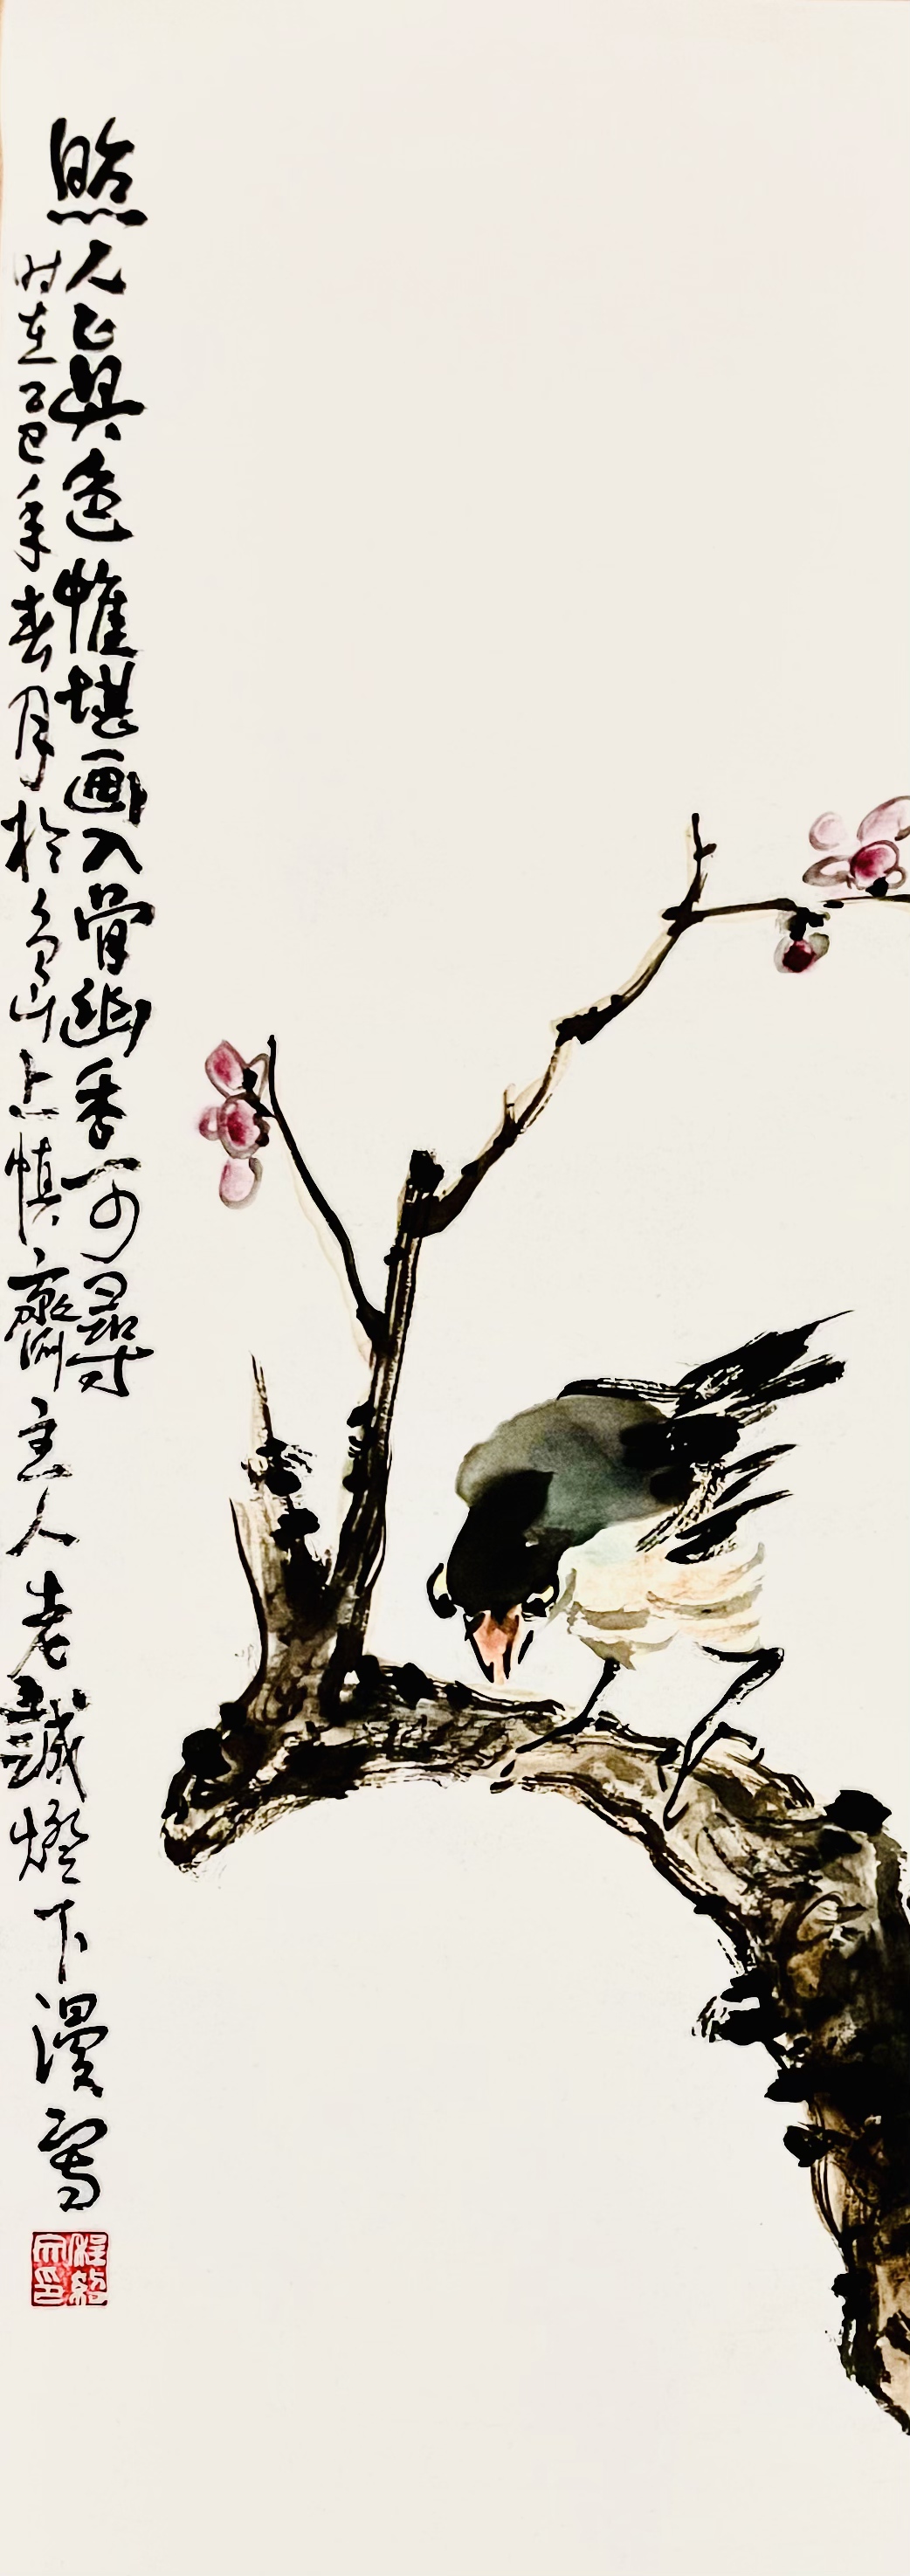 照人正真色惟堪画入骨幽香可尋
时在乙巳年春月於象山上慎齋主人老誠燈下漫写